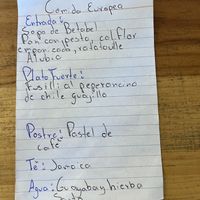 Comida Europea
Entrada:
Sopa de Betabel
Pan con pesto, coliflor
empanizada, ratatouille
Alubia
Plato Fuerte:
Fusilli al peperoncino
de chile guajillo
Postre: Pastel de
café
Té: Jamaica
Agua: Guayaba y hierba